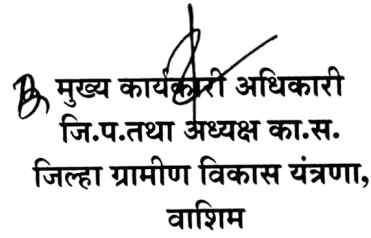 मुख्य कार्यकारी अधिकारी
जि.प.तथा अध्यक्ष का.स.
जिल्हा ग्रामीण विकास यंत्रणा,
वाशिम